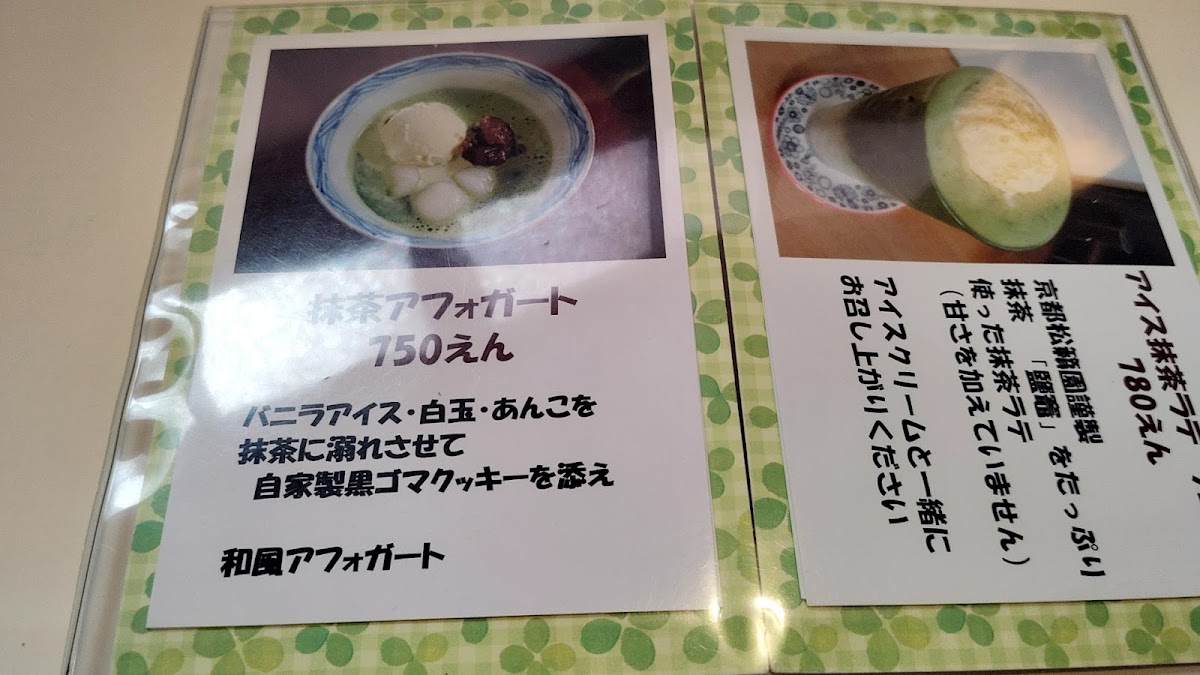 抹茶アフォガート
750えん
バニラアイス・白玉・あんこを
抹茶に溺れさせて
自家製黒ゴマクッキーを添え
和風アフォガート
アイス抹茶ラテ
780えん
京都松籟園謹製
抹茶 「鹽竈」をたっぷり
使った抹茶ラテ
(甘さを加えていません)
アイスクリームと一緒に
お召し上がりください